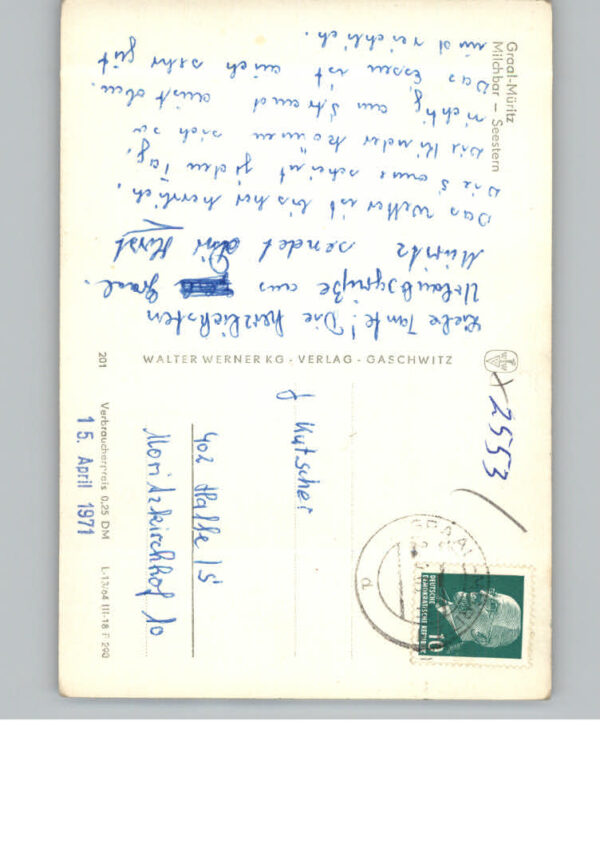 Graal-Müritz
Milchbar – Seestern
Liebe Tante! Die herzlichsten
Urlaubsgrüße aus Graal-
Müritz sendet dir Horst
Das Wetter ist bisher herrlich.
Die Sonne scheint jeden Tag.
Die Kinder können sich so
richtig am Strand austoben.
Das Essen ist auch sehr gut
und reichlich.
201 WALTER WERNER KG · VERLAG · GASCHWITZ
Verbraucherpreis 0,25 DM L-13/64 III-18 F 290
15. April 1971
x 2553
DEUTSCHE
DEMOKRATISCHE REPUBLIK
10
GRAAL-MÜ
a
Kutscher
402 Halle /S
Moritzkirchhof 10